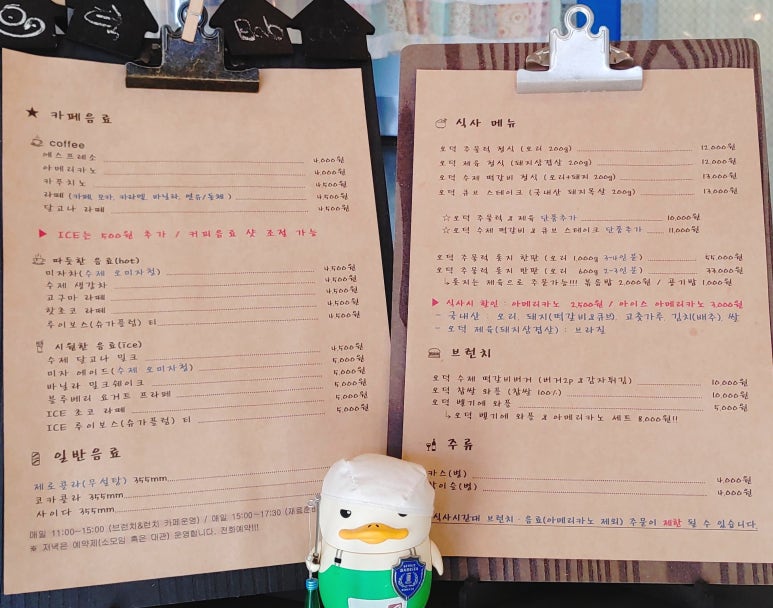 ★ 카페음료
coffee
에스프레소 4,000원
아메리카노 4,000원
카푸치노 4,500원
라떼 (카페, 모카, 카라멜, 바닐라, 연유/돌체) 4,500원
달고나 라떼 4,500원
▶ ICE는 500원 추가 / 커피음료 샷 조절 가능
따듯한 음료(hot)
미자차(수제 오미자청) 4,500원
수제 생강차 4,500원
고구마 라떼 4,500원
핫초코 라떼 4,500원
루이보스(슈가플럼) 티 4,500원
시원한 음료(ice)
수제 달고나 밀크 4,500원
미자 에이드(수제 오미자청) 5,000원
바닐라 밀크쉐이크 5,000원
블루베리 요거트 프라페 5,000원
ICE 초코 라떼 5,000원
ICE 루이보스(슈가플럼) 티 5,000원
일반음료
제로콜라(무설탕) 355mm
코카콜라 355mm
사이다 355mm
매일 11:00~15:00 (브런치&런치 카페운영) / 매일 15:00~17:30
※ 저녁은 예약제(소모임 혹은 대관) 운영합니다. 전화예약!!!
식사 메뉴
오덕 주물럭 정식 (오리 200g) 12,000원
오덕 제육 정식 (돼지삼겹살 200g) 12,000원
오덕 수제 떡갈비 정식 (오리+돼지 200g) 13,000원
오덕 큐브 스테이크 (국내산 돼지목살 200g) 13,000원
☆오덕 주물럭 & 제육 단품추가 10,000원
☆오덕 수제 떡갈비 & 큐브 스테이크 단품추가 11,000원
오덕 주물럭 통지 한판 (오리 1,000g 3-4인분) 55,000원
오덕 주물럭 통지 반판 (오리 600g 2-3인분) 33,000원
↳통지는 제육으로 주문가능!!! 볶음밥 2,000원 / 공기밥 1,000원
▶ 식사시 할인 : 아메리카노 2,500원 / 아이스 아메리카노 3,000원
- 국내산 : 오리, 돼지(떡갈비&큐브), 고춧가루, 김치(배추), 쌀
- 오덕 제육(돼지삼겹살) : 브라질
브런치
오덕 수제 떡갈비버거 (버거2p & 감자튀김) 10,000원
오덕 찹쌀 와플 (찹쌀 100%) 10,000원
오덕 벨기에 와플 5,000원
↳오덕 벨기에 와플 & 아메리카노 세트 8,000원!!
주류
카스(병) 4,000원
참이슬(병) 4,000원
식사시간대 브런치 · 음료(아메리카노 제외) 주문이 제한 될 수 있습니다.